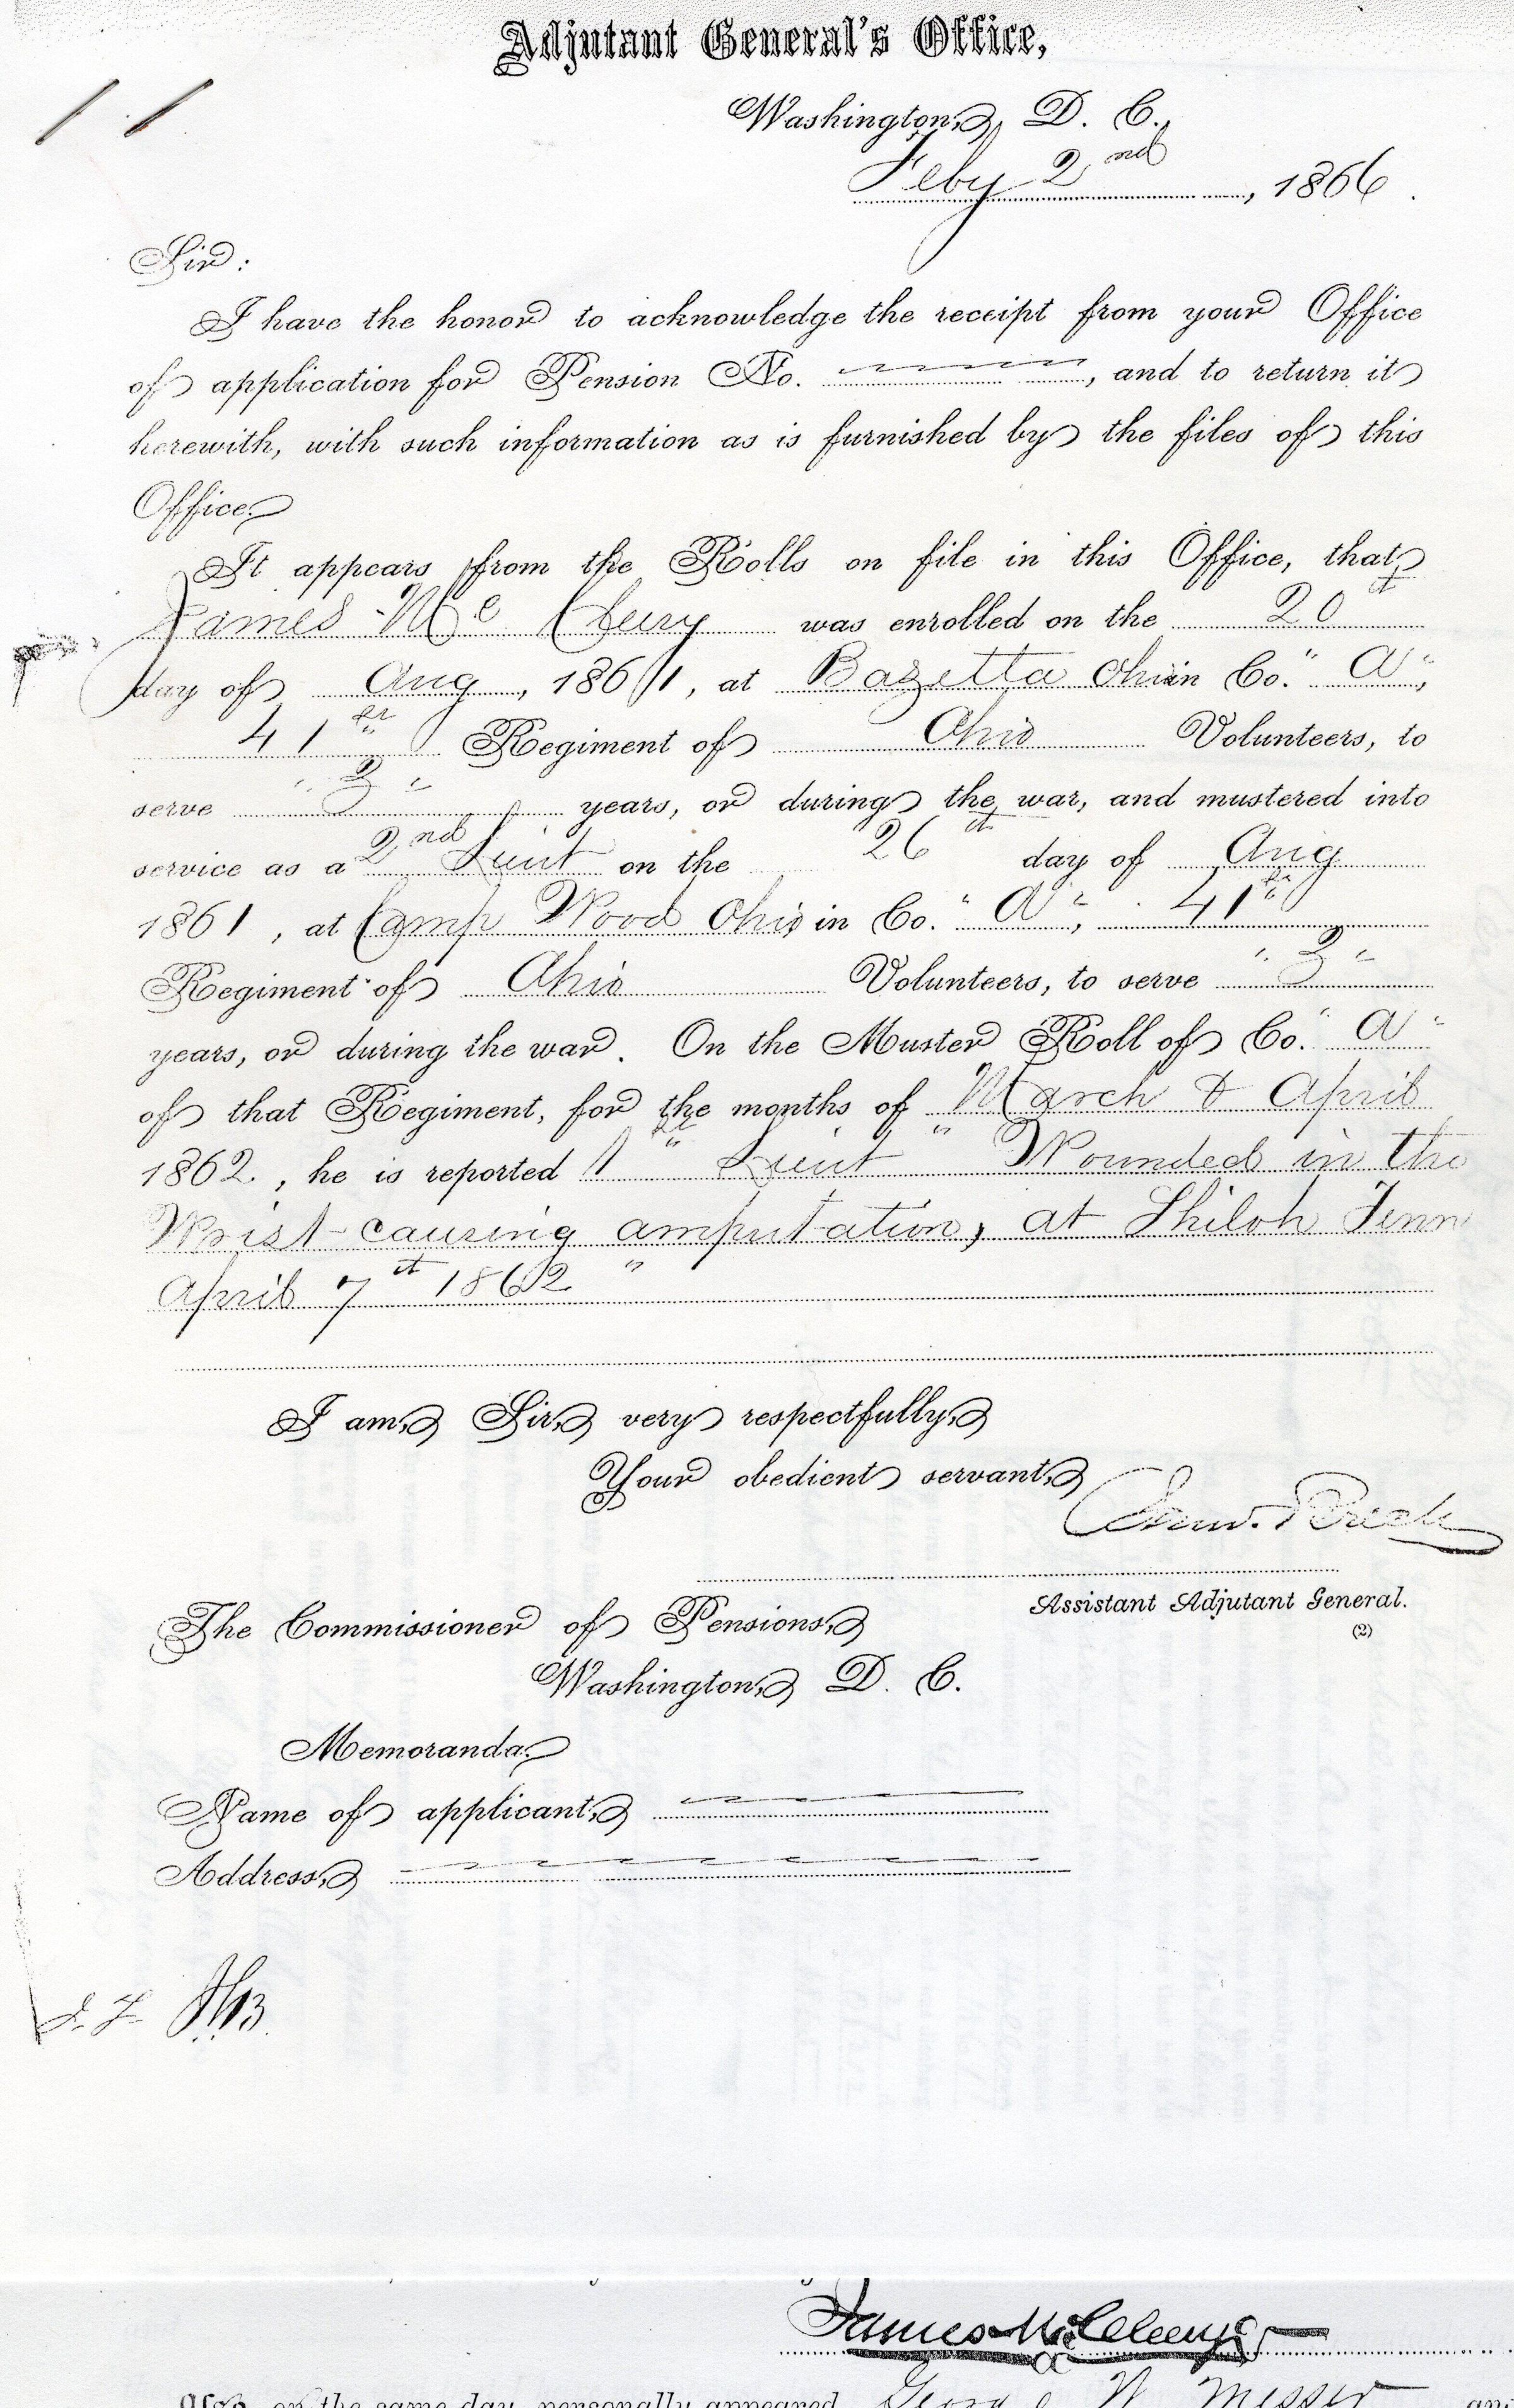 Adjutant General's Office,
Washington, D. C.,
Feby 2nd, 1866.
Sir:
I have the honor to acknowledge the receipt from your Office
of application for Pension No. , and to return it
herewith, with such information as is furnished by the files of this
Office.
It appears from the Rolls on file in this Office, that
James Mc Cleery was enrolled on the 20th
day of Aug, 1861, at Bazetta Ohio in Co. "A",
41st Regiment of Ohio Volunteers, to
serve "3" years, or during the war, and mustered into
service as a 2nd Lieut on the 26th day of Aug
1861, at Camp Wood Ohio in Co. "A", 41st
Regiment of Ohio Volunteers, to serve "3"
years, or during the war. On the Muster Roll of Co. "A"
of that Regiment, for the months of March & April
1862, he is reported 1st "Lieut" Wounded in the
Wrist causing amputation, at Shiloh Tenn
April 7th 1862"
I am, Sir, very respectfully,
Your obedient servant,
Saml. Breck
Assistant Adjutant General.
(2)
The Commissioner of Pensions,
Washington, D. C.
Memoranda.
Name of applicant,
Address,
James McCleery
Also, on the same day, personally appeared George W Messer and